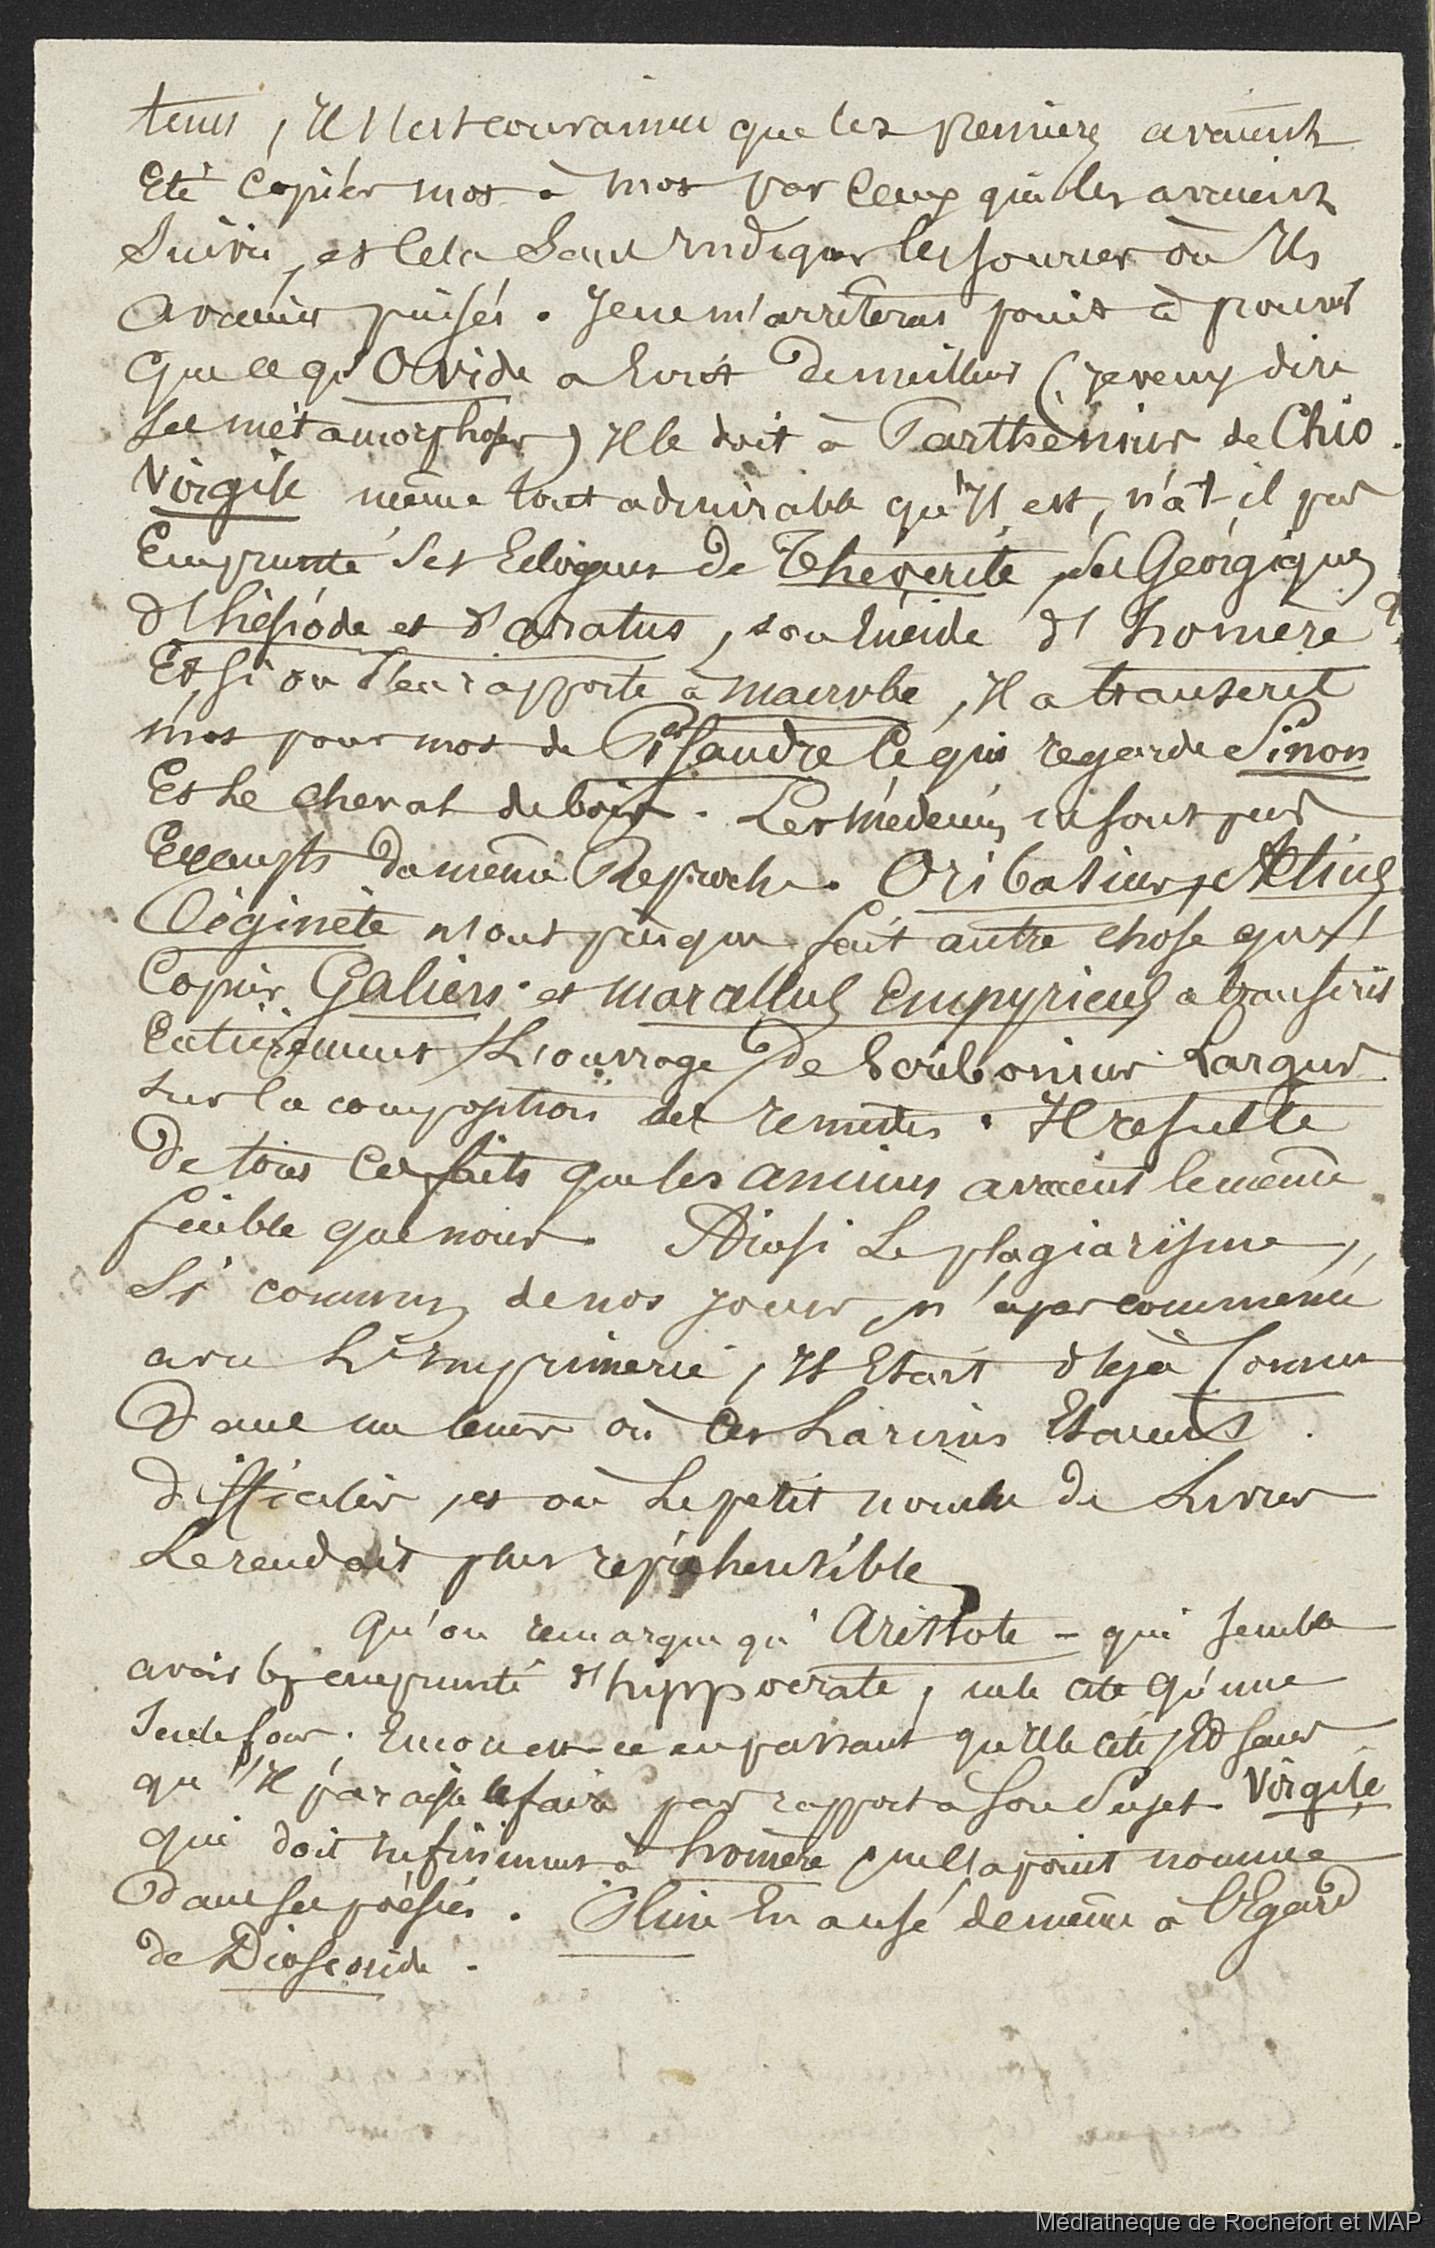 tems, Il s'est convaincu que les premiers avaient
Eté copiés mot à mot par ceux qui les avaient
Suivi, et cela sans Indiquer les sources où Ils
avaient puisés. Je ne m'arreterai point à prouver
que ce qu'Ovide a Ecrit de meilleur (je veux dire
ses métamorphoses) Il le doit à Parthenius de Chio.
Virgile même tout admirable qu'Il est, n'a t-il pas
Emprunté ses Eclogues de Théocrite, ses Géorgiques
d'hésiode et d'aratus, son Enéide d'homère ?
Et si on s'en rapporte à macrobe, Il a transcrit
mot pour mot de Pisandre ce qui regarde Sinon
Et Le cheval de bois. Les médecins en sont pas
Exempts du même Reproche. Oribasius, Aetius
Eéginète n'ont presque fait autre chose que
Copier Galien et marcellus Empyricus a transcrit
Entièrement L'ouvrage de Scribonius Largus
sur la composition des remedes. Il resulte
de tous ces faits que les anciens avaient le même
faible que nous. Ainsi Le plagiarisme,
Si commun de nos jours, n'a pas commencé
avec L'Imprimerie, Il Etait déjà Connu
Dans un tems où ces Larcins Etaient
difficiles, et où Le petit nombre de Livres
Le rendait plus repréhensible
Qu'on remarque qu'Aristote - qui semble
avoir emprunté d'hyppocrate, ne le cite qu'une
Seule fois; Encore est-ce en passant qu'Il le cite, Et sans
qu'Il paraisse le faire par rapport à son Sujet. Virgile
qui doit Infiniment à homère, ne l'a point nommé
Dans ses poésies. Pline En a usé de même à l'Egard
de Dioscoride.
Médiathèque de Rochefort et MAP